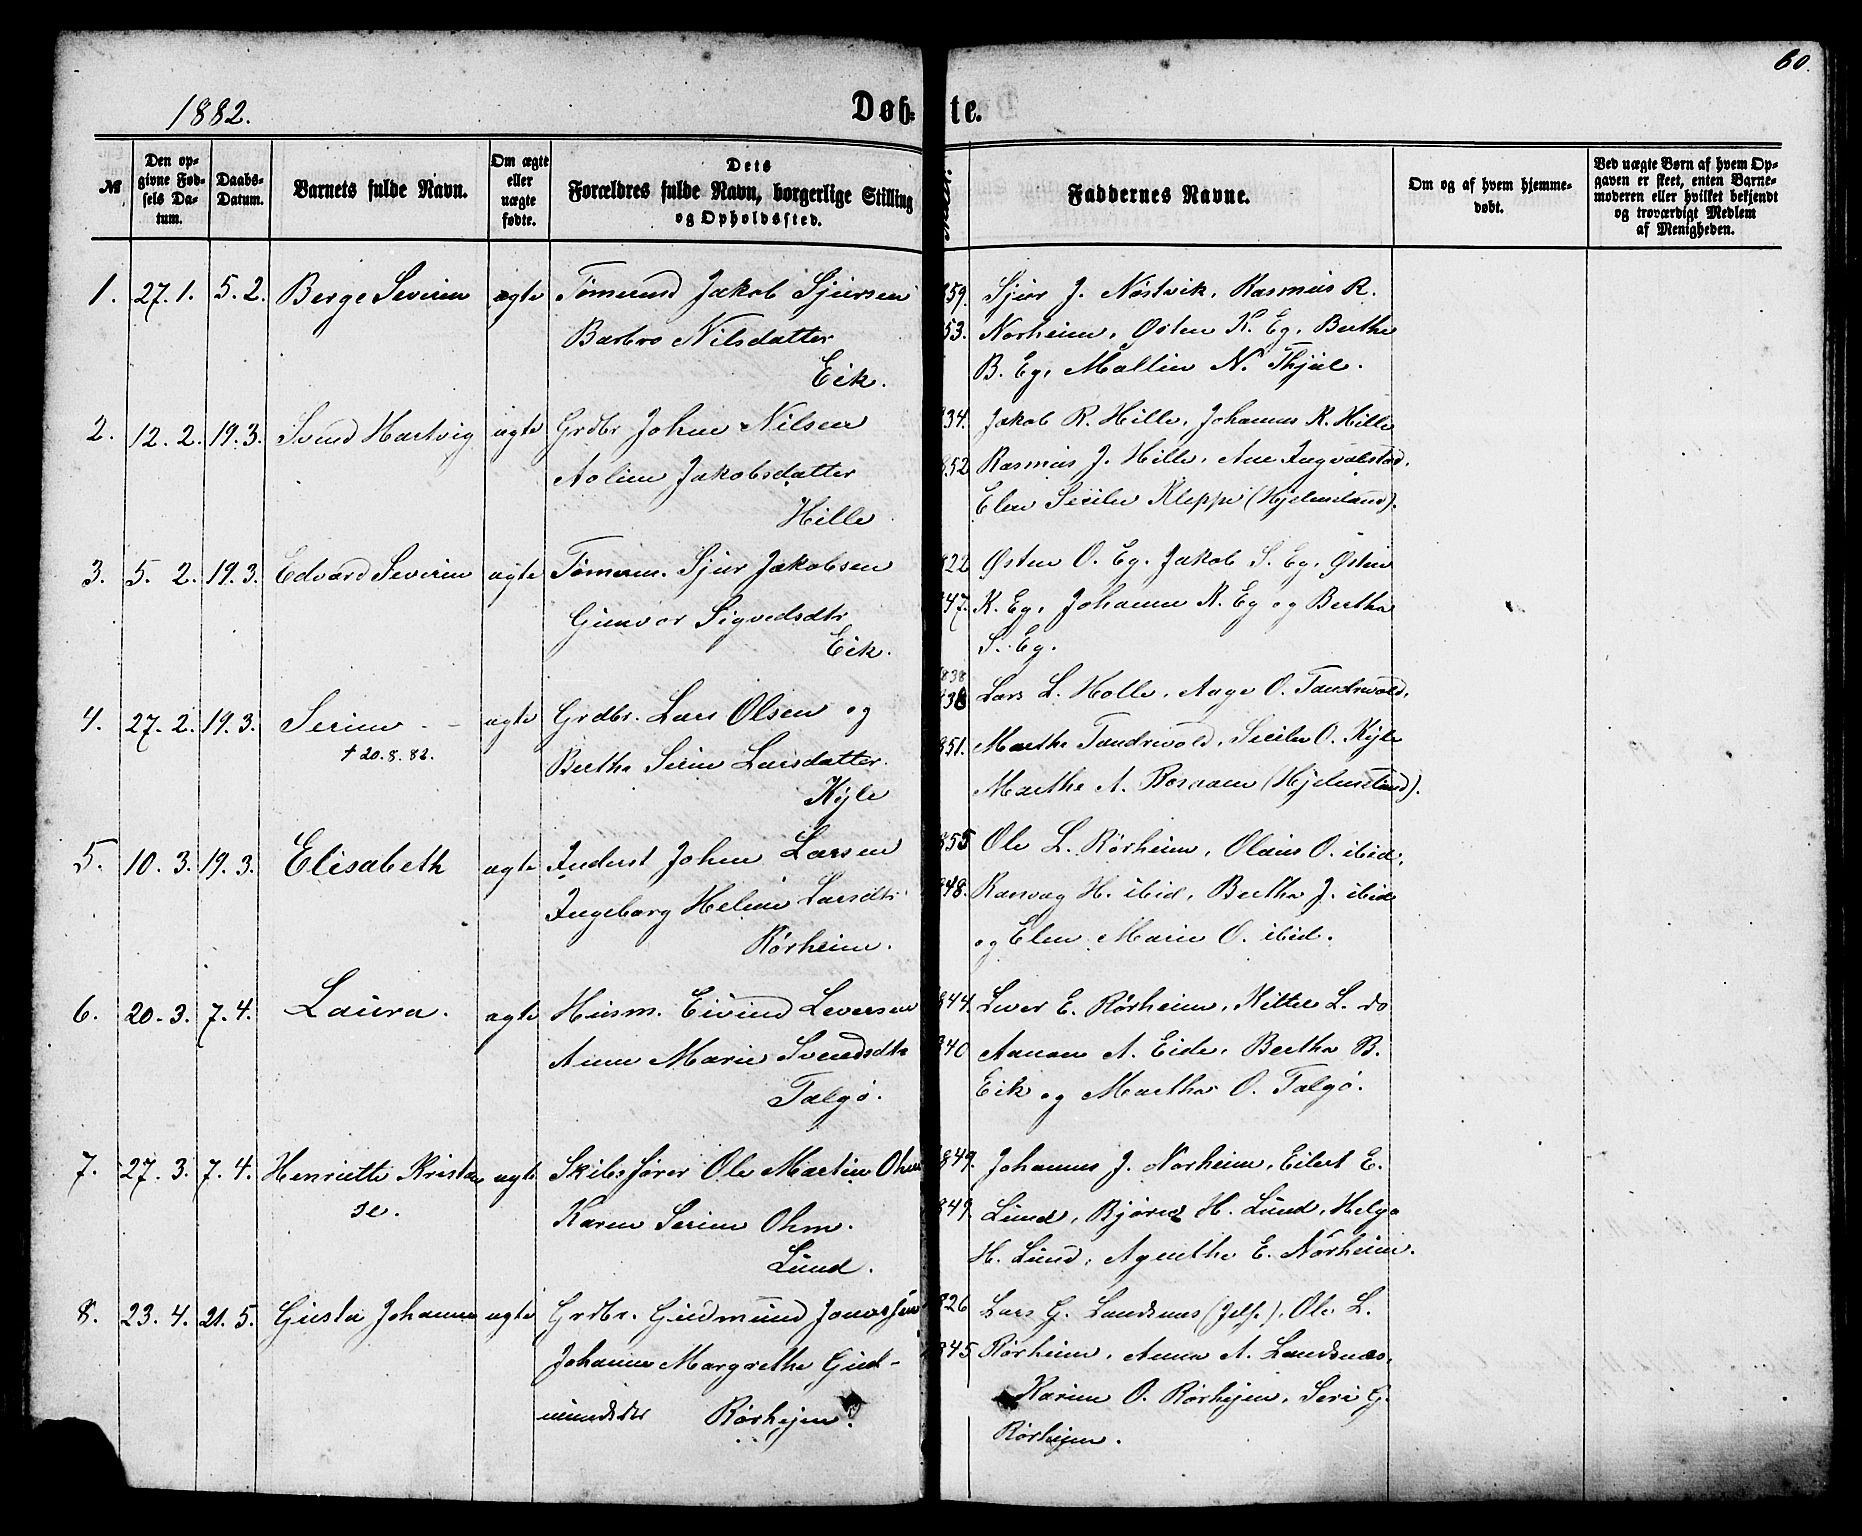 60.
1882.
Døb- te.
№
Den opgivne Fødsels Datum.
Daabs-Datum.
Barnets fulde Navn.
Om ægte eller uægte fødte.
Dets Forældres fulde Navn, borgerlige Stilling og Opholdssted.
Faddernes Navne.
Om og af hvem hjemmedøbt.
Ved uægte Børn af hvem Opgaven er skeet, enten Barnemoderen eller hvilket bekjendt og troværdigt Medlem af Menigheden.
1. 27. 1. 5. 2. Berge Severin ægte Tømmermd Jakob Sjursen 859. Sjur J. Nøstvik, Rasmus R.
Barbro Nilsdatter 53. Norheim, Østen K. Eg, Berthe
Eik. B. Eg, Mallin N.
2. 12. 2. 19. 3. Svend Hartvig ægte Grdbr Johan Nilsen 834. Jakob R. Hille, Johannes R. Hille
Aoline Jakobsdatter 852 Rasmus J. Hille, Ane Ingvalstad,
Hille Elen Secilie Kleppe (Hjelmeland).
3. 5. 2. 19. 3. Edvard Severin ægte Tømerm. Sjur Jakobsen 822 Østen O. Eg, Jakob S. Eg, Østen
Gunvor Sigvedsdtr 47. K. Eg, Johanne K. Eg og Bertha
Eik. S. Eg.
838
4. 27. 2. 19. 3. Serine ægte Grdbr. Lars Olsen og 838 Lars L. Holle, Aage O. Tandrevold,
† 20. 8. 82. Berthe Serine Larsdatter 851. Marthe Tandrevold, Secilie O. Kyle
Kyle Marthe A. (Hjelmeland).
5. 10. 3. 19. 3. Elisabeth ægte Inderst Johan Larsen 855 Ole L. Rørheim, Olaus O. ibid,
Ingeborg Heline Larsdtr 848. Ranvag H. ibid, Bertha J. ibid
Rørheim. og Elen Marie O. ibid.
6. 20. 3. 7. 4. Laura. ægte Husm. Eivind Leversen 844. Liver E. Rørheim, Kittel L. do
Anne Marie Svendsdtr 840 Aanan A. Eide, Bertha B.
Talgø. Eik og Martha O. Talgø.
7. 27. 3. 7. 4. Henriette Kristen ægte Skibsfører Ole Martin Ohm 849. Johannes J. Norheim, Eilert E.
se. Karen Serine Ohm. 849. Lund, Bjørne H. Lund, Helga
Lund. H. Lund, Agnethe E. Norheim.
8. 23. 4. 21. 5. Gusta Johanne ægte Grdbr. Gudmund Jonassen 826 Lars G. Landsnes (Jelse), Ole L.
Johanne Margrethe Gud- 845 Rørheim, Anna A. Landsnes,
mundsdtr Rørhejm. Karine O. Rørhejm, Seri G.
Rørhejm.